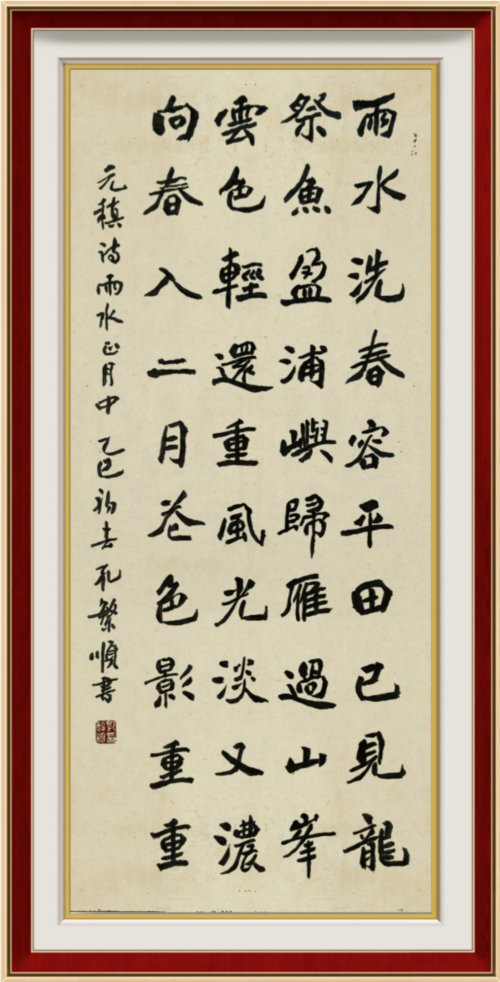 雨水洗春容平田已見龍
祭魚盈浦嶼歸雁過山峯
雲色輕還重風光淡又濃
向春入二月花色影重重
元稹诗雨水正月中乙巳初春孔繁順書